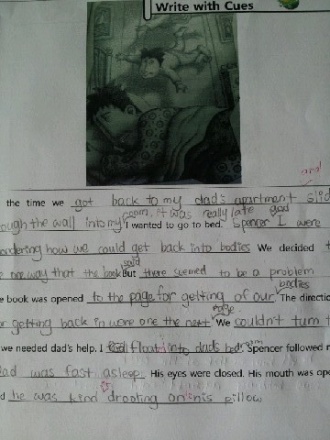 Write with Cues
the time we got back to my dad's apartment slid
and
ough the wall into my room, it was really late and
I wanted to go to bed. Spencer I were
ondering how we could get back into bodies We decided t
way that the book said But there seemed to be a problem
e book was opened to the page for getting of our bodies The direction
or getting back in were one the next page We couldn't turn t
we needed dad's help. I float into dad's Spencer followed m
Dad was fast asleep His eyes were closed. His mouth was ope
d he was kind drooling on his pillow